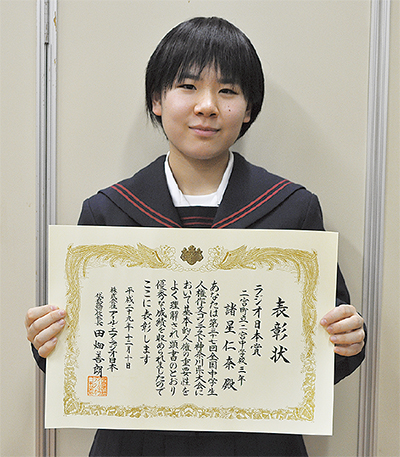 表彰状
ラジオ日本賞
二宮町立二宮中学校三年
諸星仁奈殿
あなたは第三十七回全国中学生
人権作文コンテスト神奈川県大会に
おいて基本的人権の重要性を
よく理解され頭書のとおり
優秀な成績を収められましたので
ここに表彰します
平成二十九年十二月十日
株式会社アール・エフ・ラジオ日本
代表取締役社長 田畑善朗